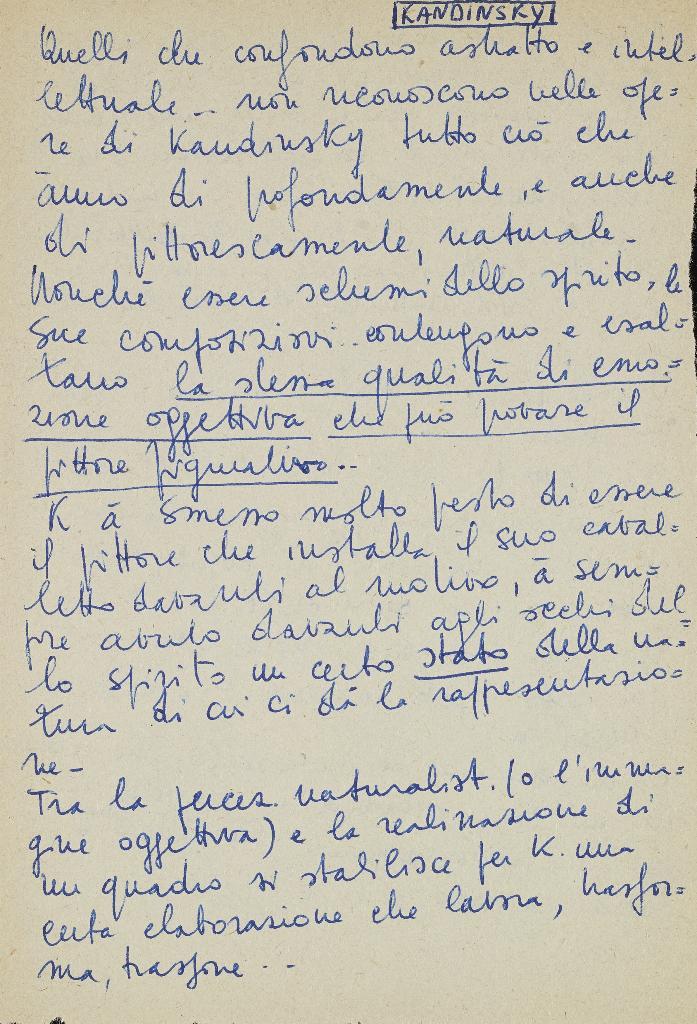 KANDINSKY
Quelli che confondono astratto e intel=
lettuale .. non riconoscono nelle ope=
re di Kandinsky tutto ciò che
ànno di pofondamente, e anche
di pittorescamente, naturale.
Nonché essere schemi dello spirito, le
sue composizioni contengono e esal=
tano la stessa qualità di emo=
zione oggettiva che può provare il
pittore figurativo..
K à smesso molto presto di essere
il pittore che installa il suo caval=
letto davanti al motivo, à sem=
pre avuto davanti agli occhi del
lo spirito un certo stato della na=
tura di cui ci dà la rappresentazio=
ne-
Tra la percez. naturalist. (o l'imma=
gine oggettiva) e la realizzazione di
un quadro si stabilisce per K. una
certa elaborazione che lavora, trasfor=
ma, traspone ..